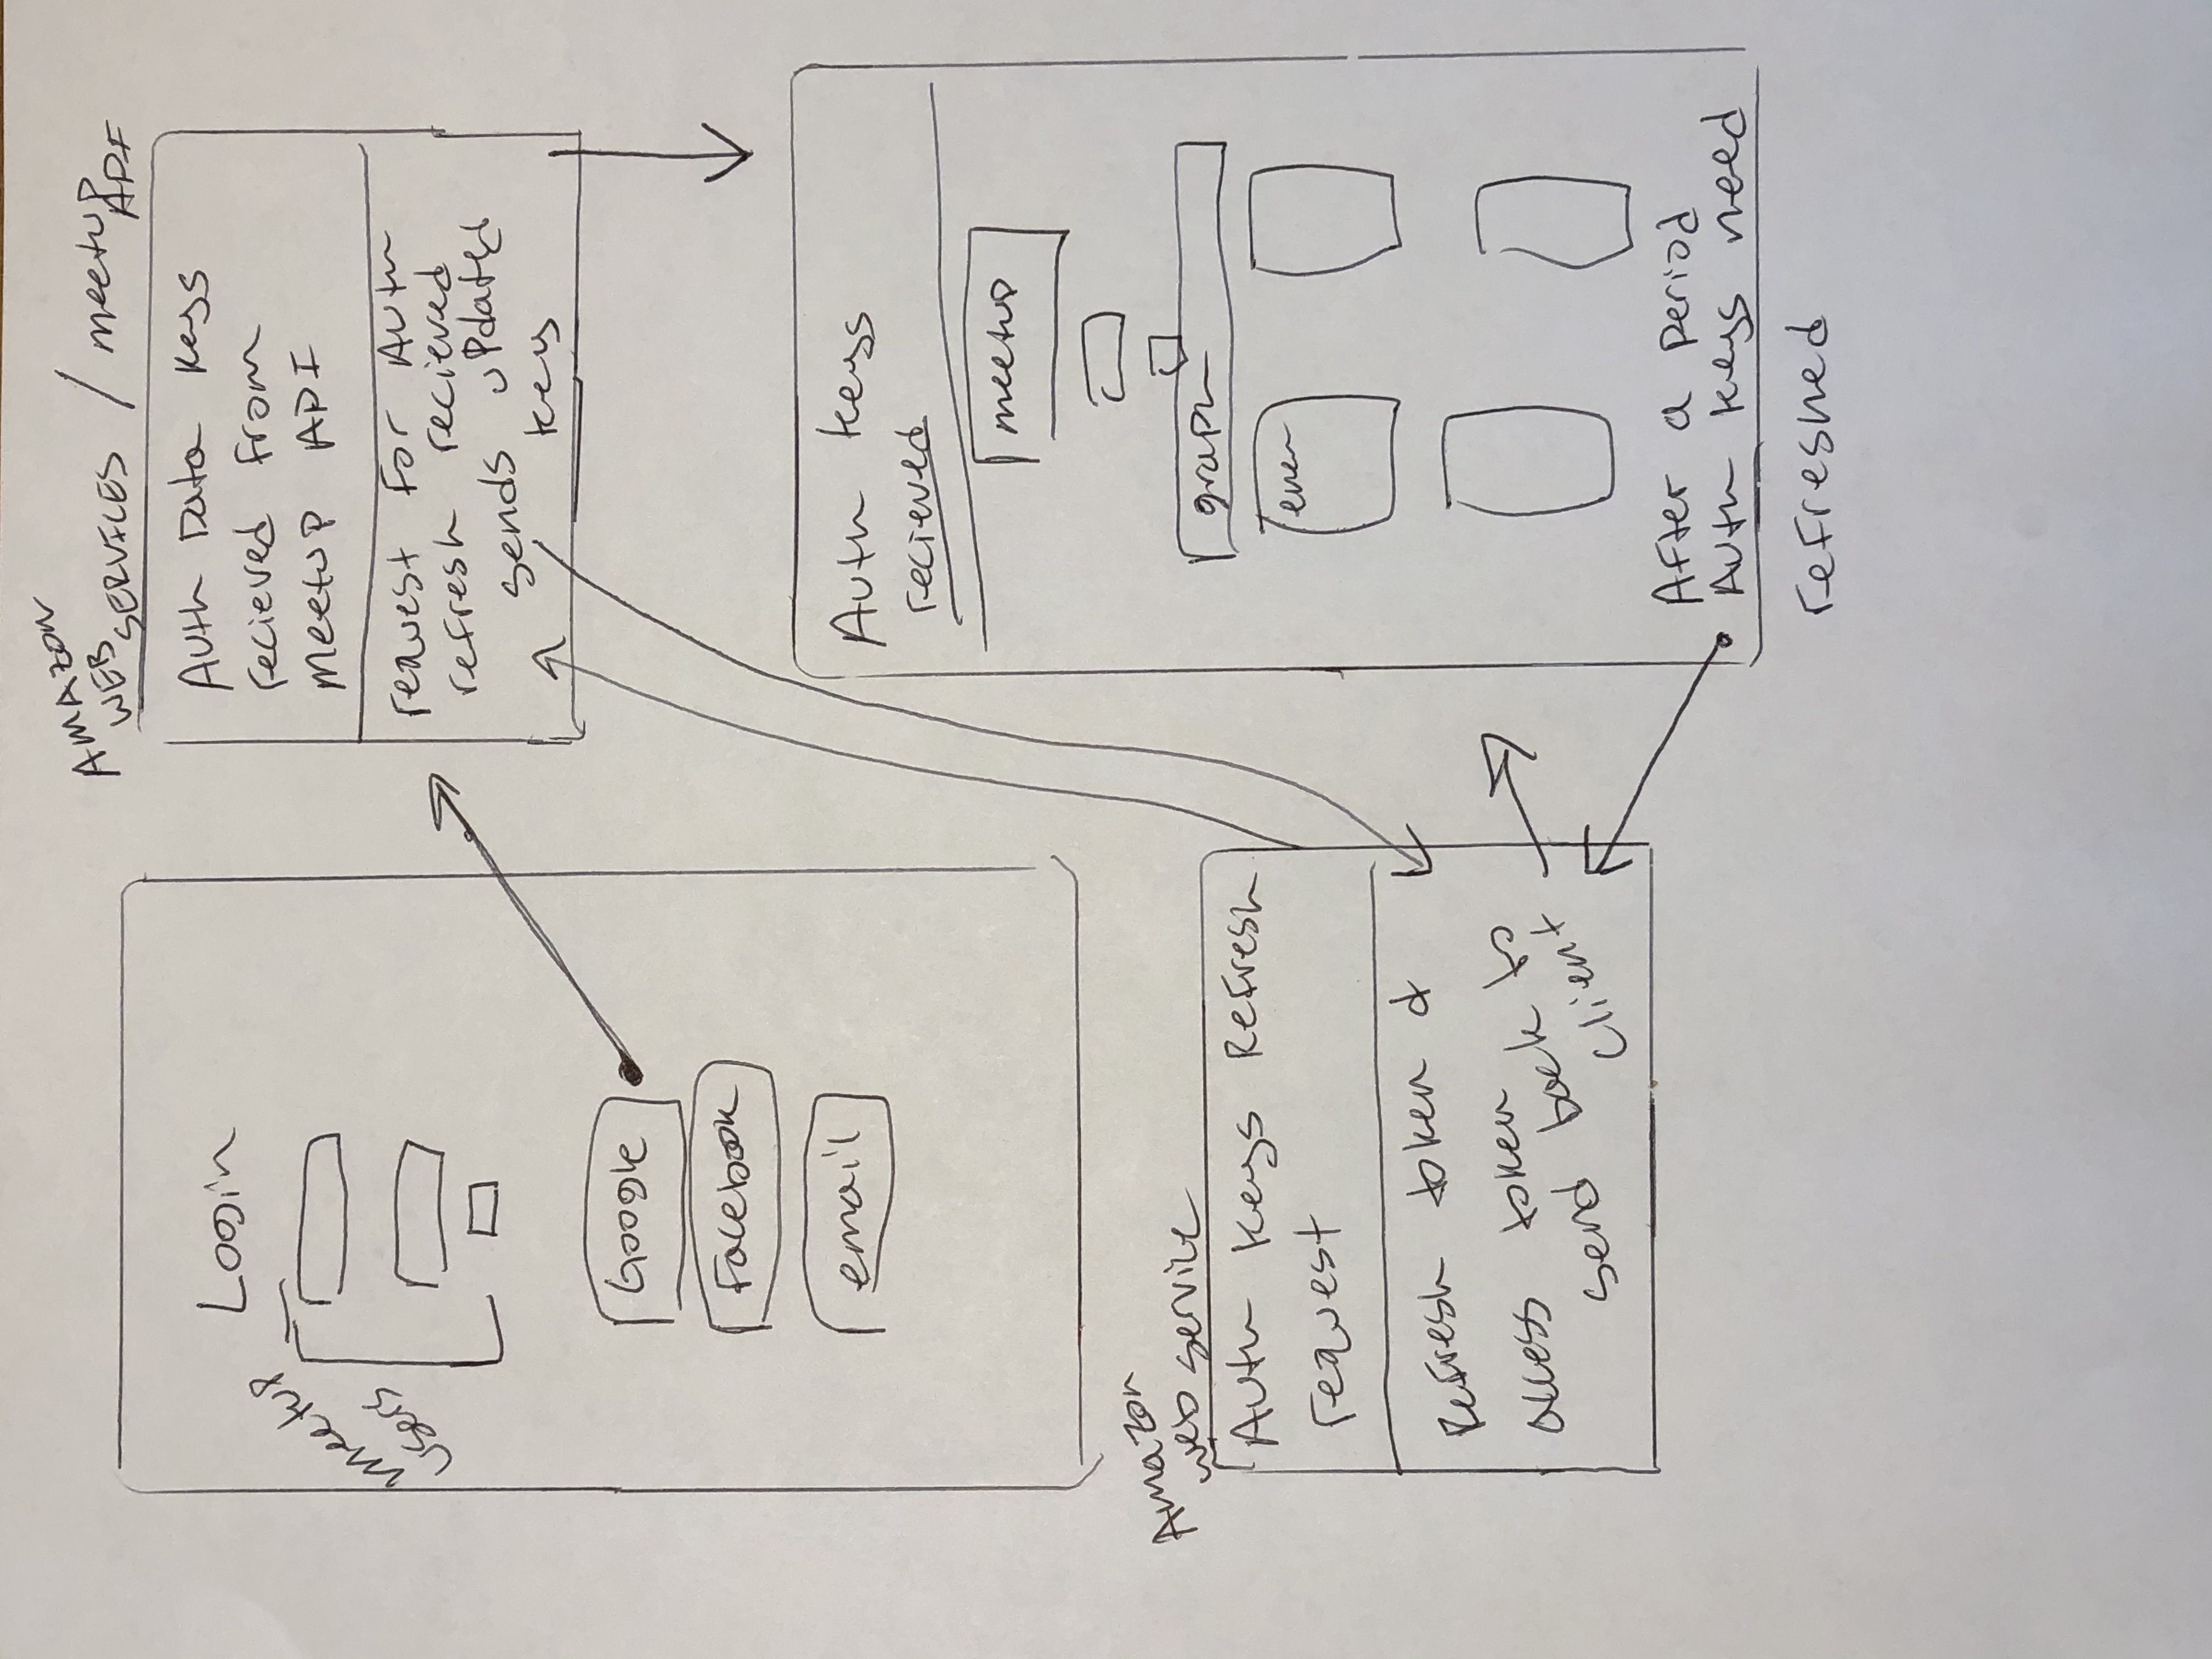 Login
meetup
users
Google
Facebook
email
AMAZON
WEB
SERVICES / meetup
API
Auth Data Keys
recieved from
meetup API
request for Auth
refresh recieved
sends updated
keys
Auth keys
recieved
meetup
graph
After a period
Auth keys need
refreshed
Amazon
web service
Auth keys Refresh
request
Refresh token &
access token
send back to
client